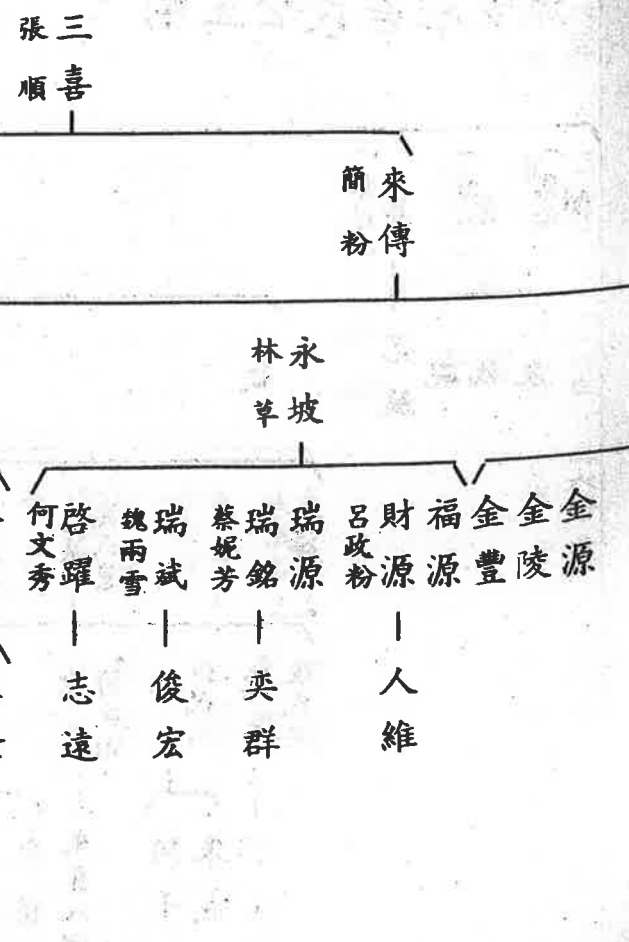 三喜
張順
來傳
簡粉
永坡
林草
金源
金陵
金豐
福源
財源
呂政粉
瑞源
瑞銘
蔡妮芳
瑞斌
魏兩雪
啓躍
何文秀
人維
奕群
俊宏
志遠